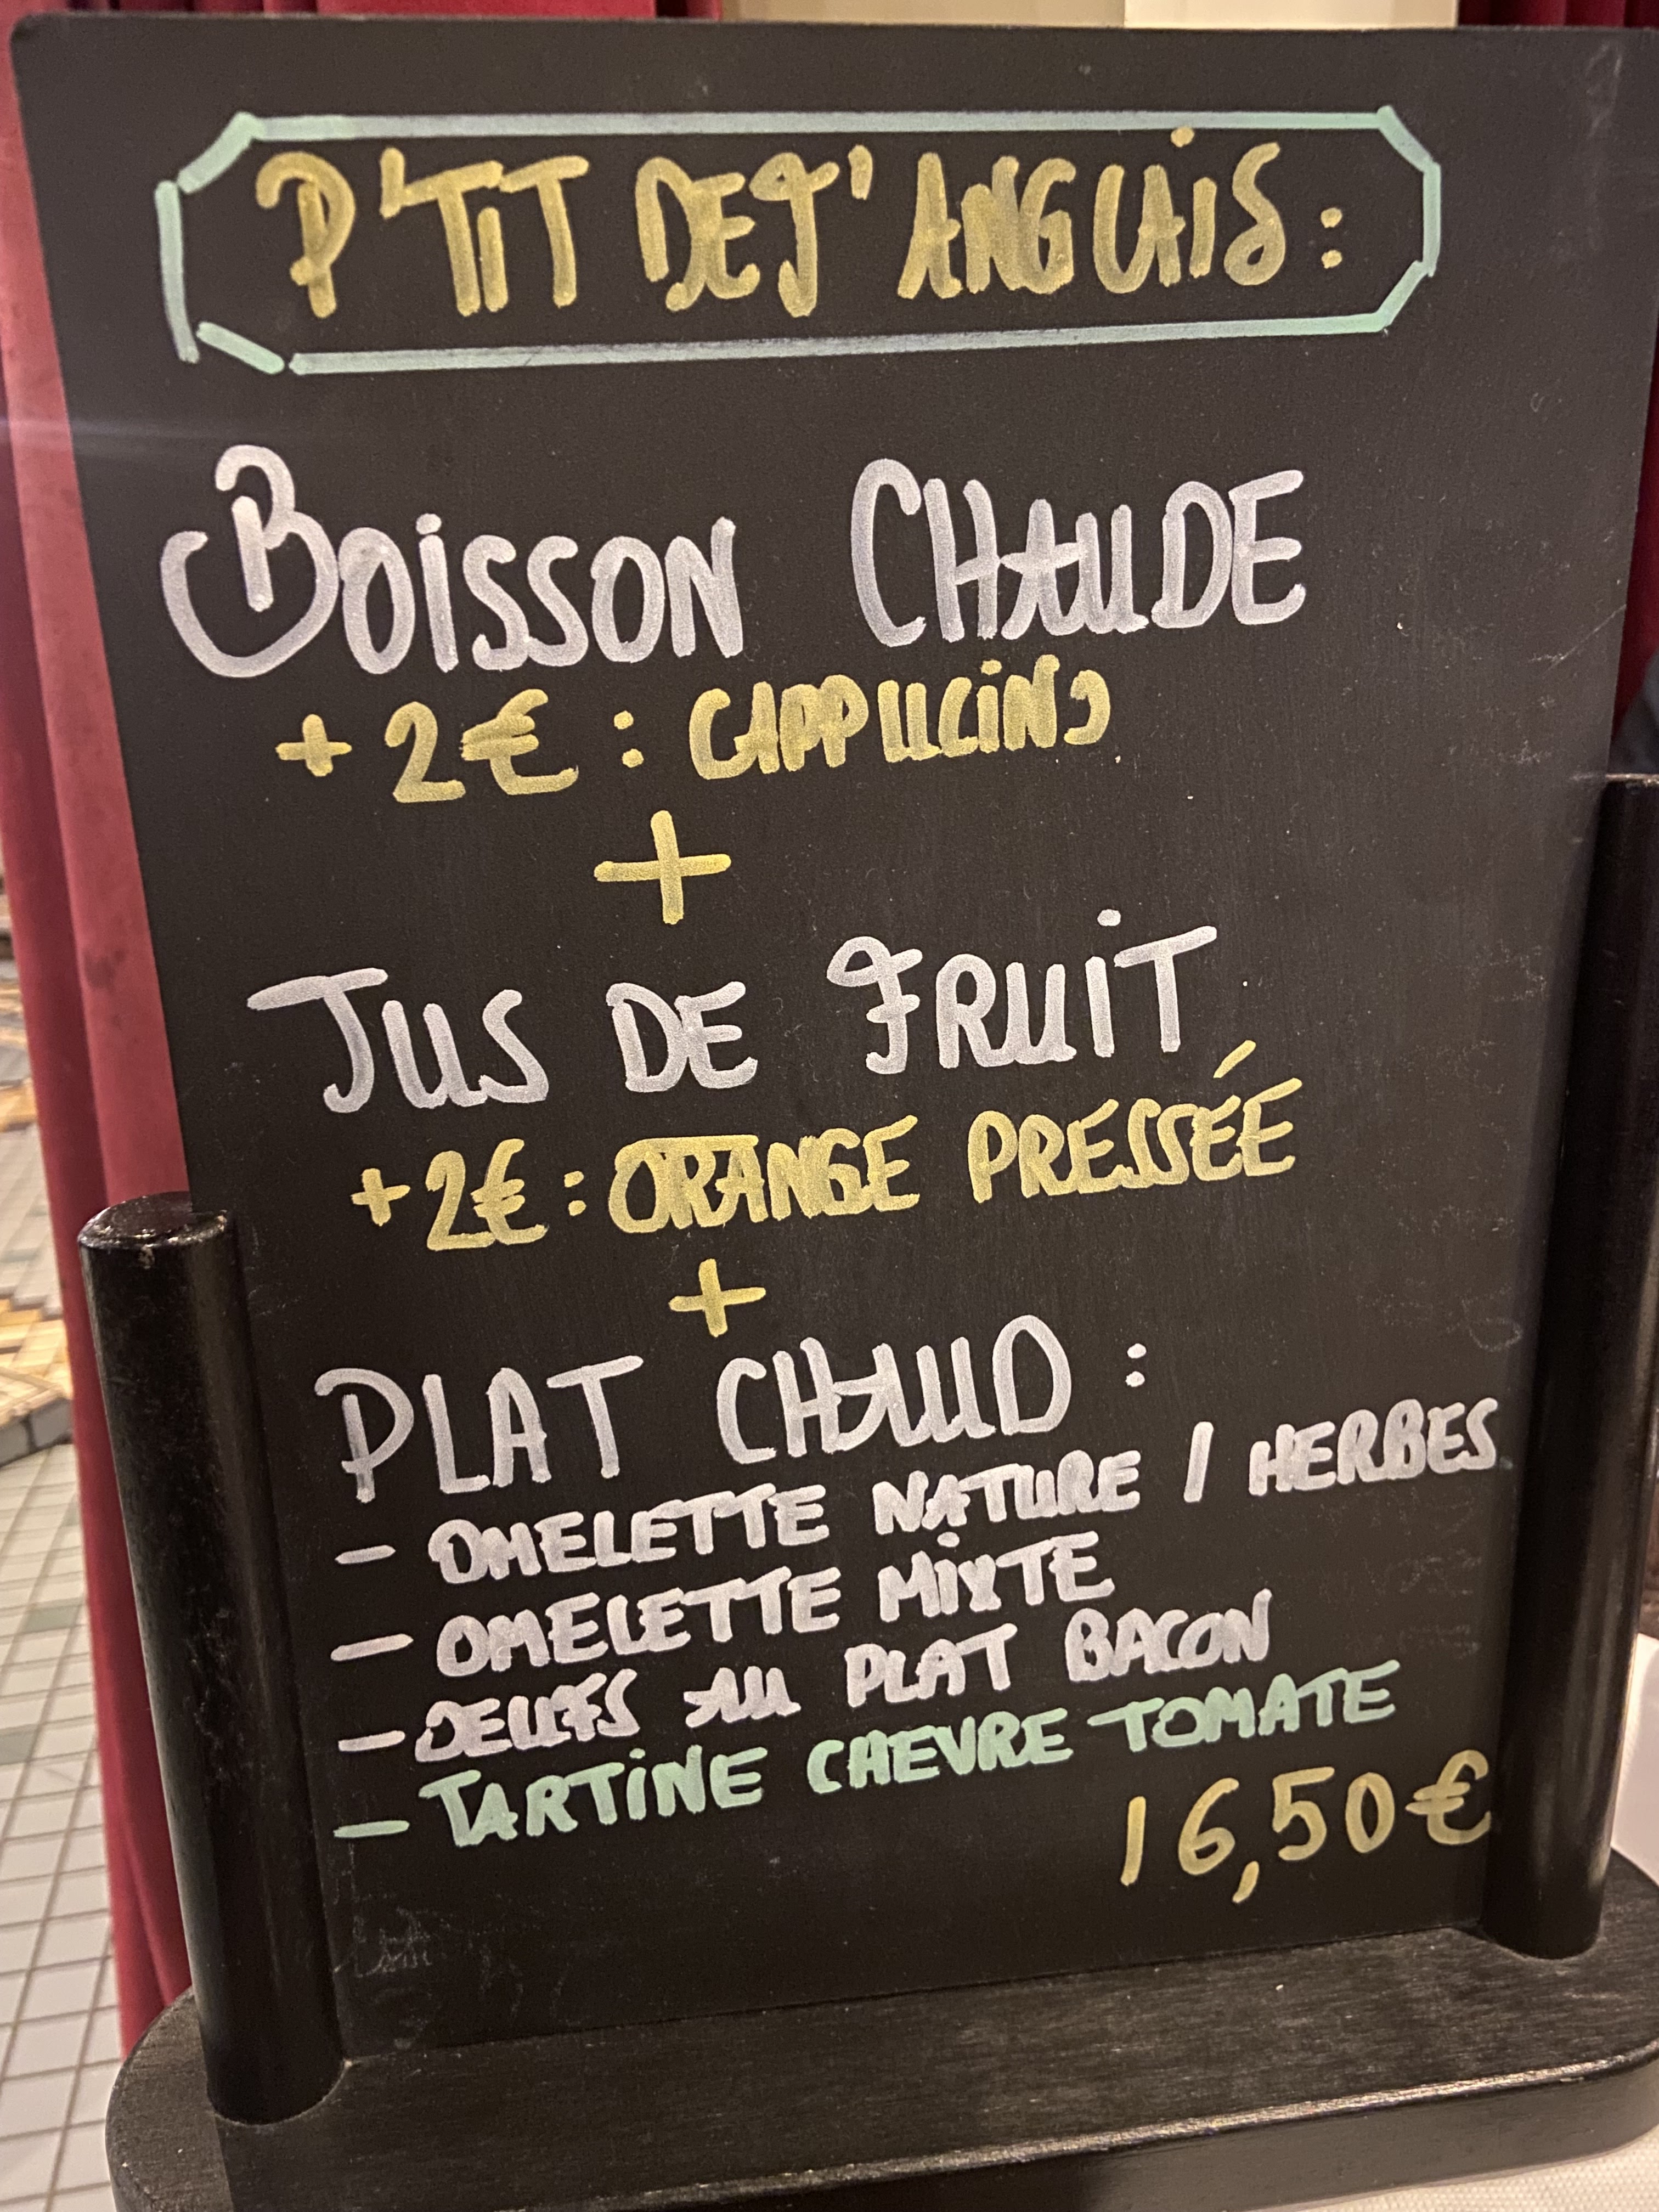 P'TIT DEJ' ANGLAIS :
BOISSON CHAUDE
+ 2€ : CAPPUCINO
+
JUS DE FRUIT
+2€ : ORANGE PRESSÉE
+
PLAT CHAUD :
- OMELETTE NATURE / HERBES
- OMELETTE MIXTE
- OEUFS AU PLAT BACON
- TARTINE CHEVRE TOMATE
16,50€